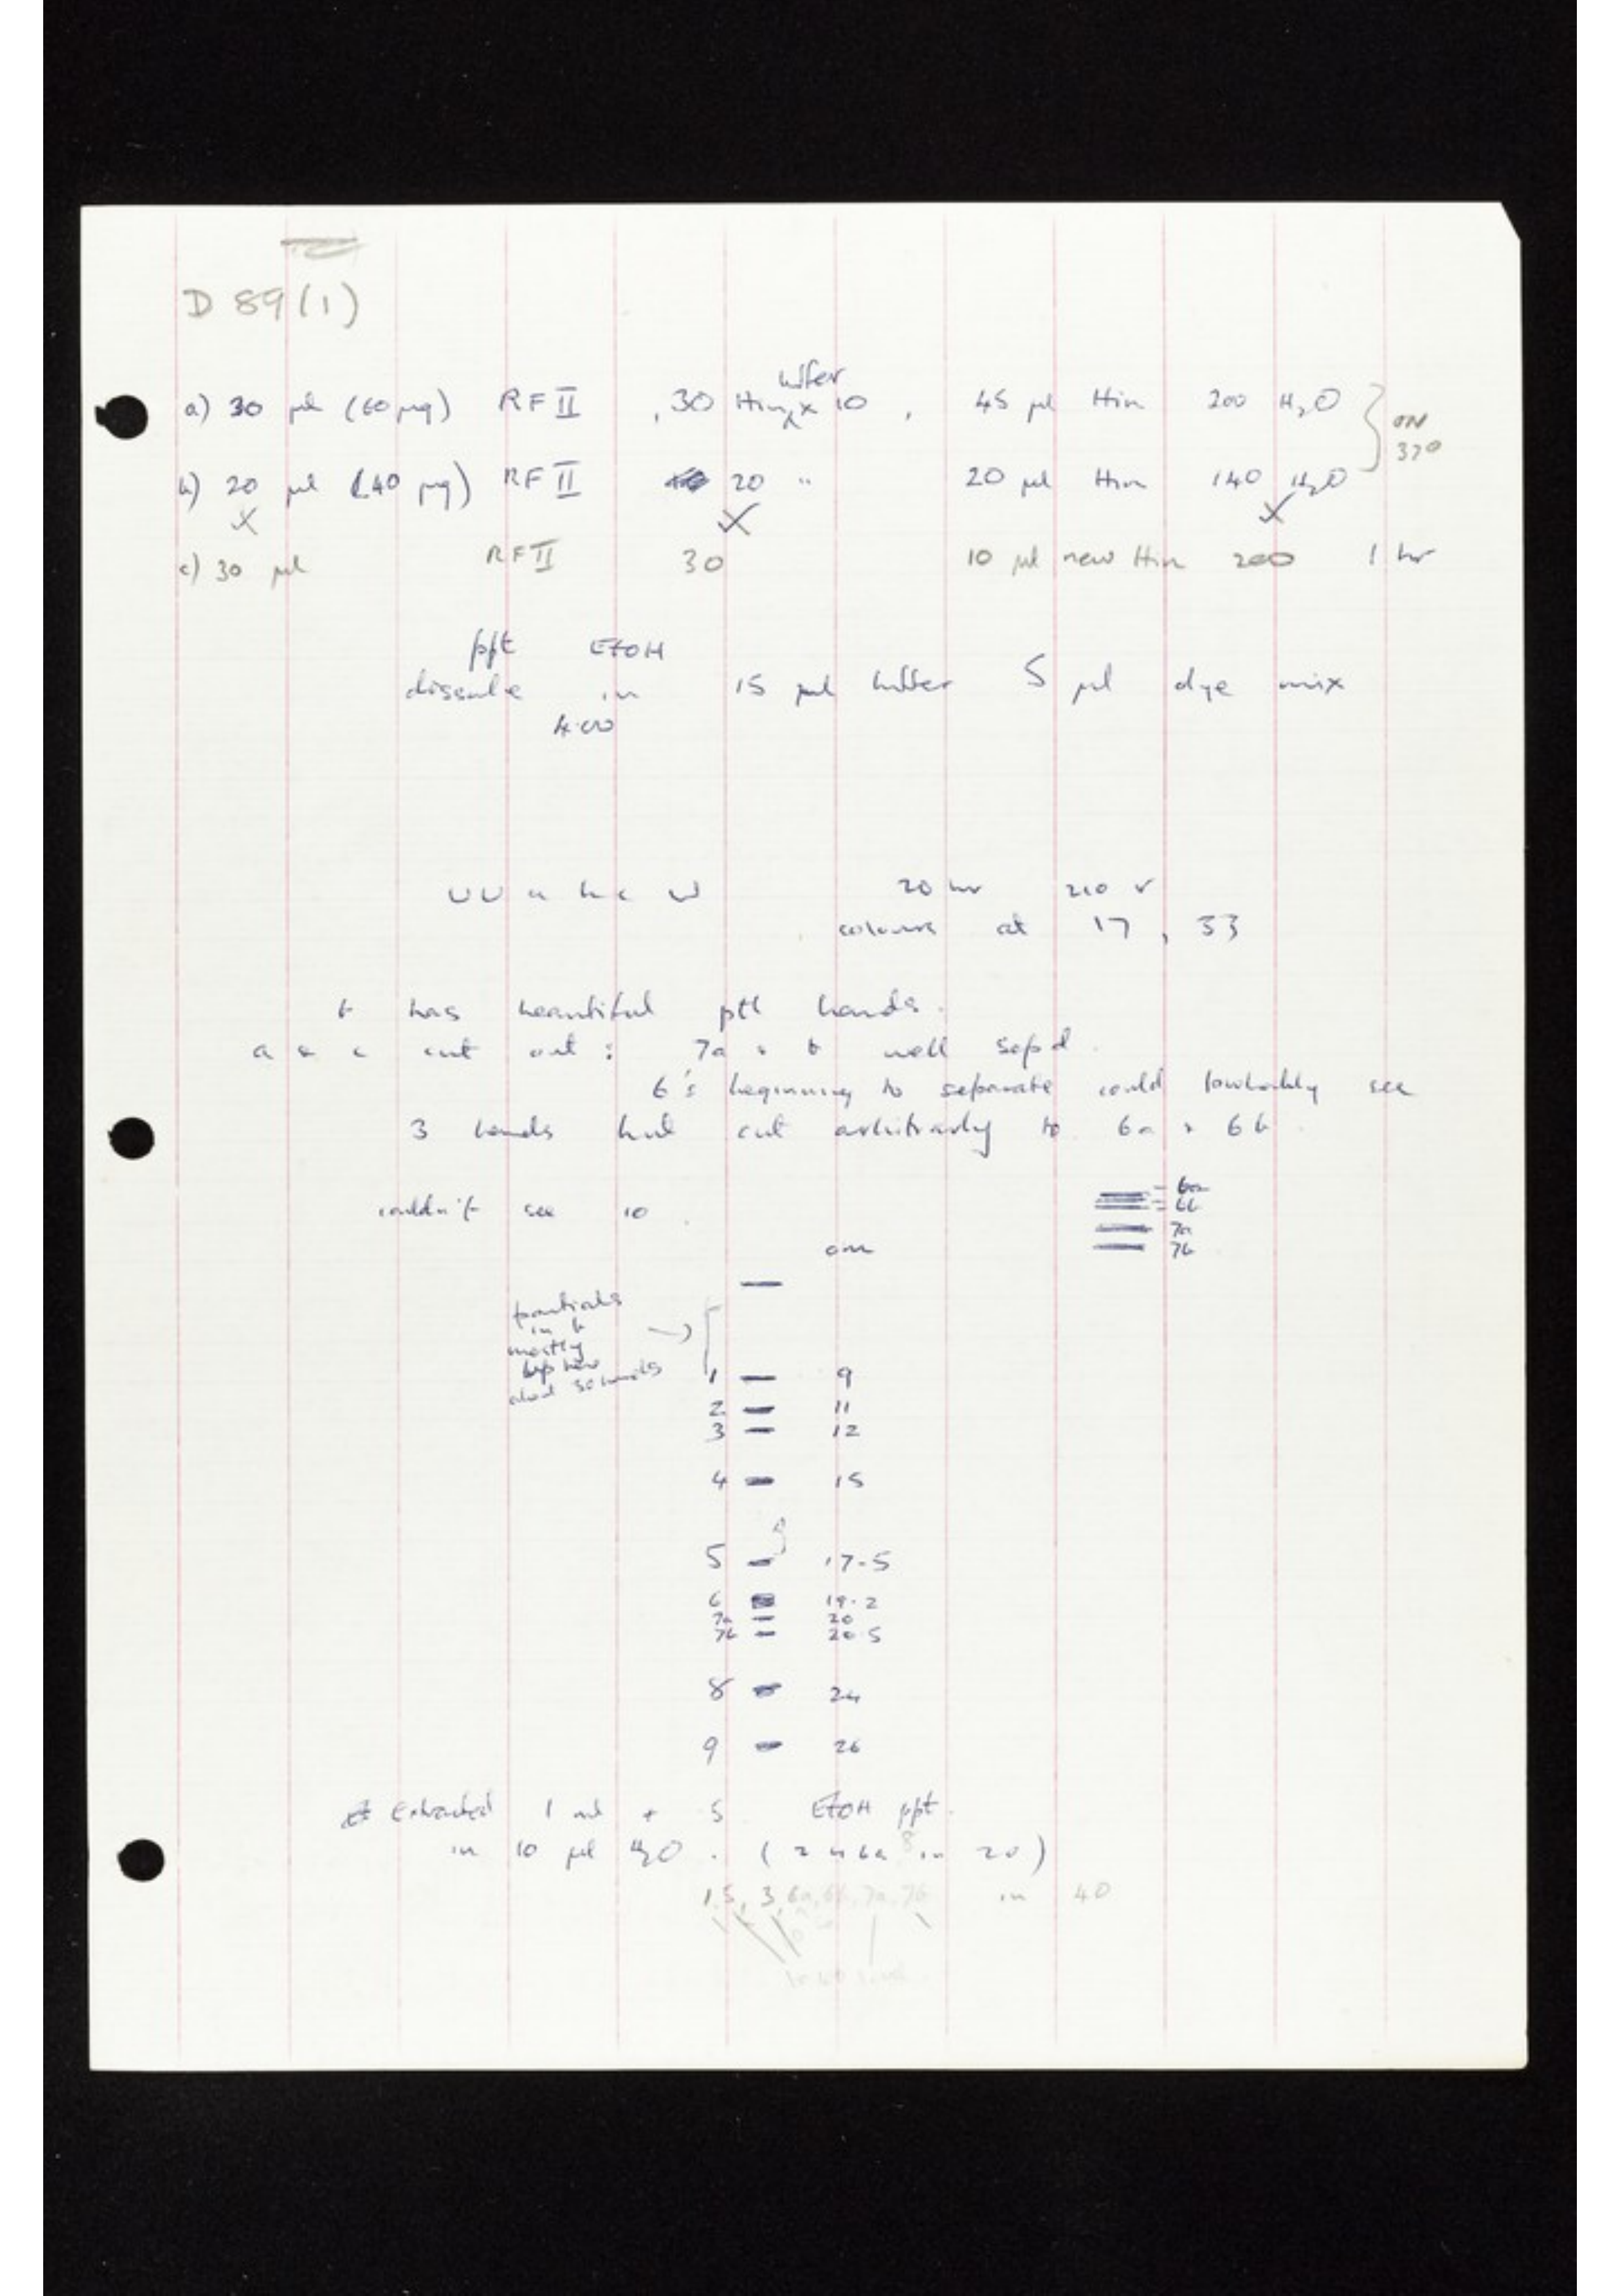 D 89(1)
buffer
a) 30 µl (60 µg) RF II , 30 Hin x 10 , 45 µl Hin 200 H2O
ON
37°
b) 20 µl (40 µg) RF II 20 " 20 µl Hin 140 H2O
c) 30 µl RF II 30 10 µl new Hin 200 1 hr
ppt EtOH
dissolve in 15 µl buffer 5 µl dye mix
4.00
U U a b c U 20 hr 210 v
colours at 17 , 33
b has beautiful ptl bands.
a & c cut out : 7a & b well sepd.
6's beginning to separate could probably see
3 bands but cut arbitrarily to 6a & 6b.
couldn't see 10.
6a
6b
7a
7b
cm
partials
in b
mostly
about 30 bands
1 9
2 11
3 12
4 15
5 17.5
6 19.2
7a 20
7b 20.5
8 24
9 26
Extracted 1 ml + 5 EtOH ppt.
in 10 µl H2O . (2 4 6a 8 in 20)
1, 5, 3, 6a, 6b, 7a, 7b in 40